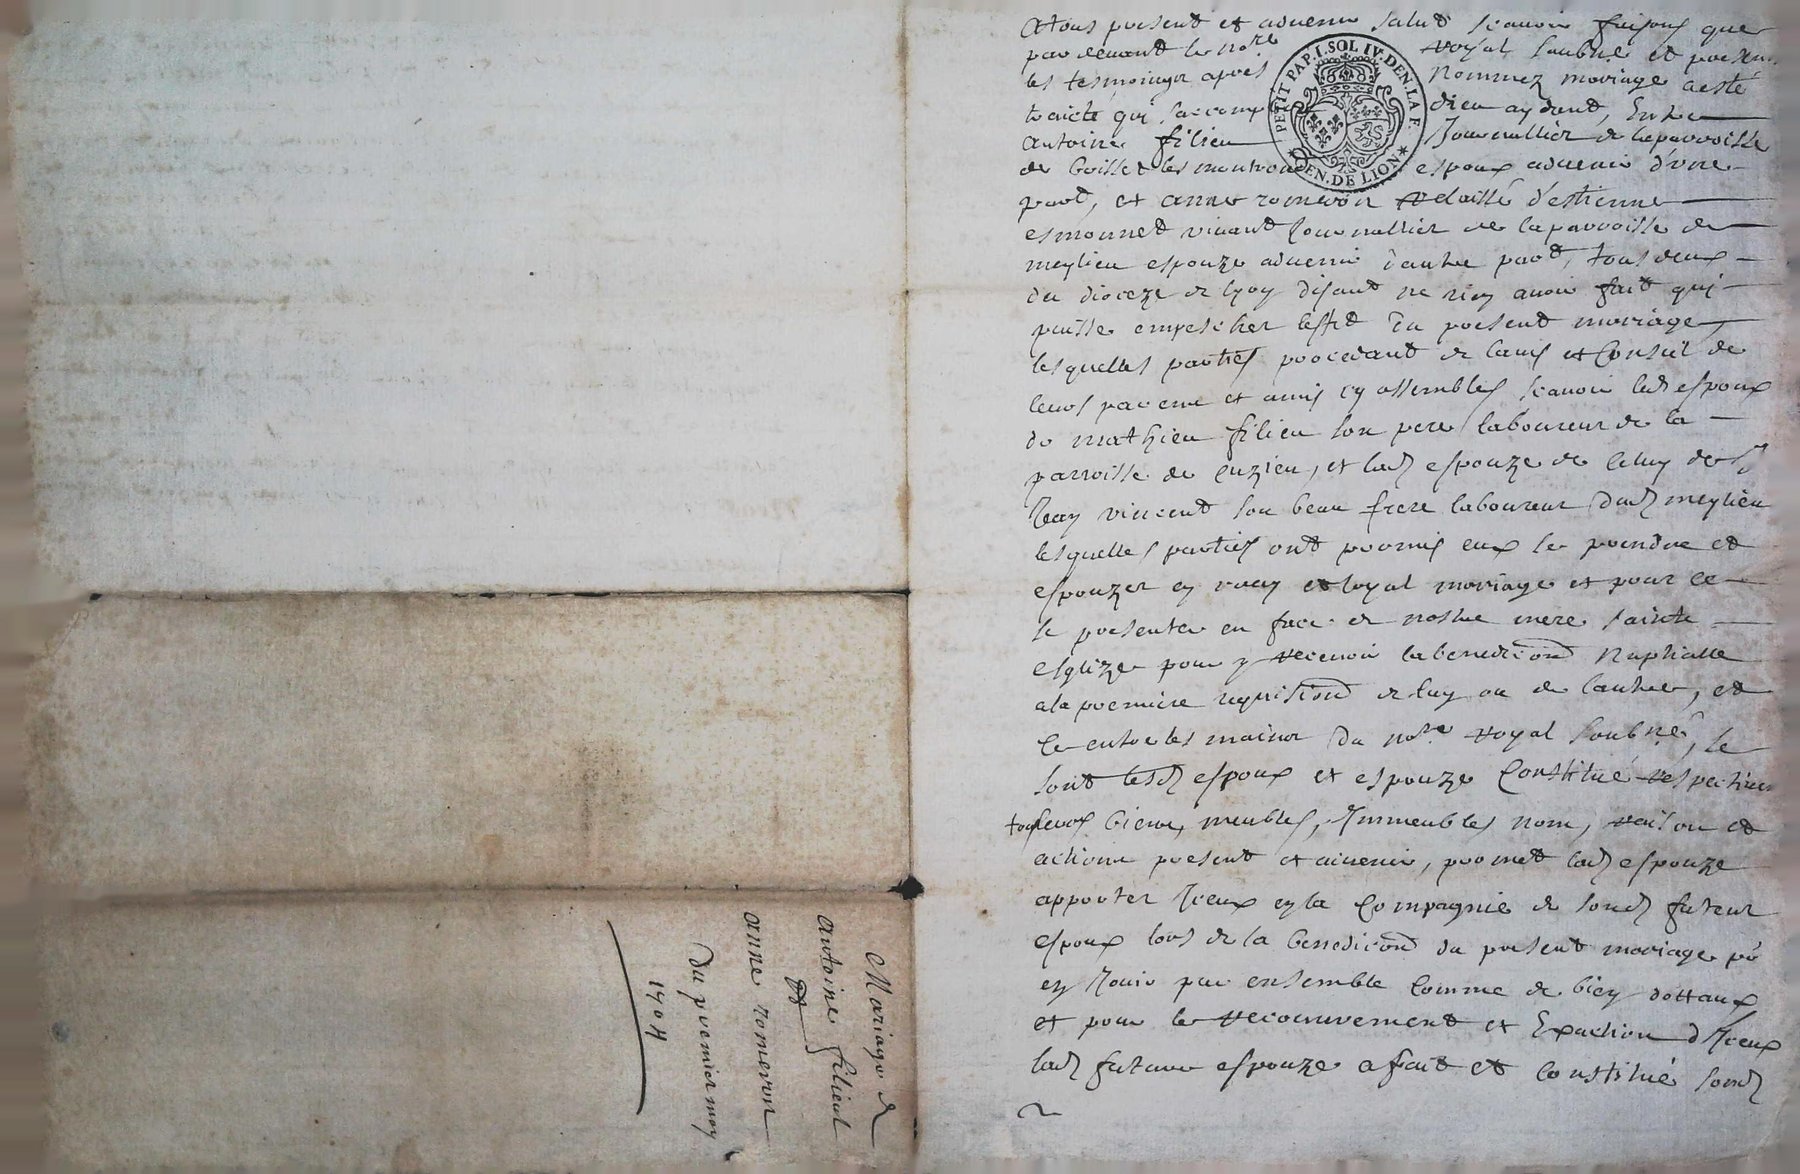 Atous present et advenir salut scavoir faisons que
pardevant le nore royal soubne et present
les tesmoings apres nommez mariage a esté
traicté qui saccomp dieu aydant, Entre
Antoine filieu Journallier de la parroisse
de boisset les montrond espoux advenir d'une
part, et anne romeron relaissé d'estienne
esmonnet vivant Journallier de la parroisse de
meylieu espouze advenir d'autre part, tous deux
du dioceze de lyon disant ne rien avoir fait qui
puisse empescher leffet du present mariage,
lesquelles parties procedant de lavis et Conseil de
leurs parens et amis cy assemblés scavoir led espoux
de mathieu filieu son pere laboureur de la
parroisse de cuzieu, et lad espouze de celuy de
Jean vincent son beau frere laboureur dud meylieu
lesquelles parties ont promis eux se prendre et
espouzer en vray et loyal mariage et pour ce
se presenter en face de nostre mere saincte
esglize pour y recevoir la benediction Nuptialle
a la premiere requisition de luy ou de lautre, et
entre les mains du nore royal soubné, se
sont lesd espoux et espouze Constitué respectivem
tous leurs biens, meubles, Immeubles nom, raison et
actions present et advenir, promet lad espouze
apporter Iceux en la Compagnie de sond futeur
espoux lors de la benediction du present mariage pr
en Jouir par ensemble Comme de bien dottaux
et pour le recouvrement et Exaction d'Iceux
lad future espouze a fait et constitué sond
PETIT PAP. I. SOL IV. DEN. LA F.
GEN. DE LION
Mariage de
antoine filieul
et
anne romeron
du premier may
1704